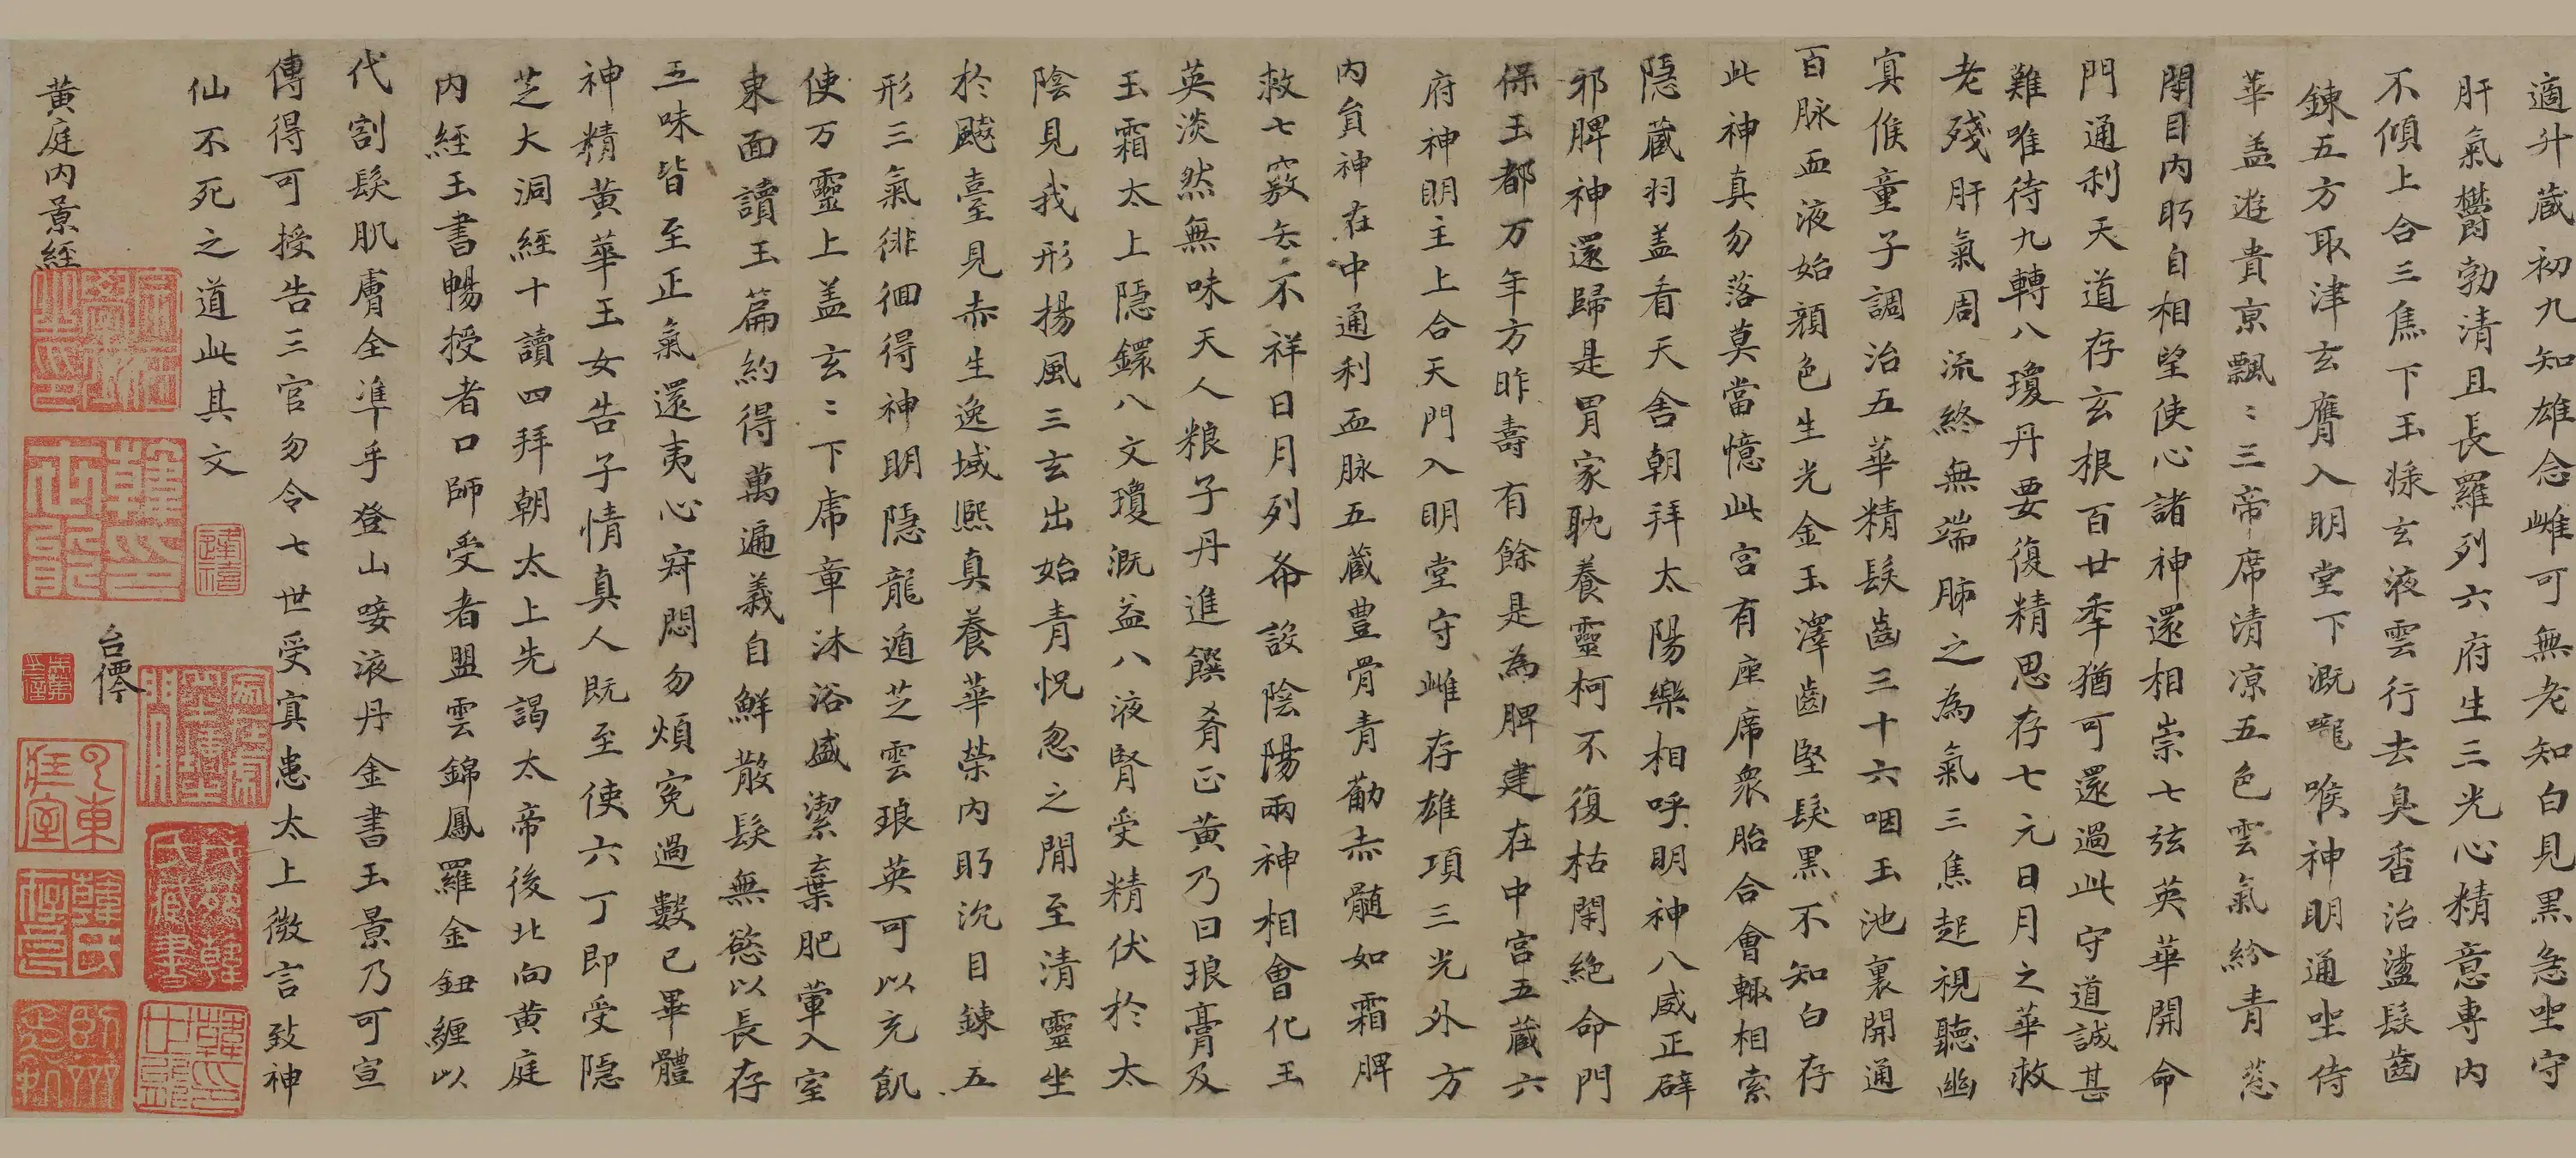 適升藏初九知雄念雌可無老知白見黑急坐守
肝氣欝勃清且長羅列六府生三光心精意專內
不傾上合三焦下玉㺿玄液雲行去臭香治盪髮齒
鍊五方取津玄膺入明堂下溉嚨喉神明通坐侍
華盖遊貴京飄〻三帝席清凉五色雲氣紛青葱
閉目內眄自相望使心諸神還相崇七弦英華開命
門通利天道存玄根百廿年猶可還過此守道誠甚
難唯待九轉八瓊丹要復精思存七元日月之華救
老殘肝氣周流終無端肺之為氣三焦起視聽幽
寘俟童子調治五華精髮齒三十六咽玉池裏開通
百脉血液始顏色生光金玉澤齒堅髮黑不知白存
此神真勿落莫當憶此宮有座席衆胎合會輙相索
隱藏羽盖看天舍朝拜太陽樂相呼明神八威正辟
邪脾神還歸是胃家耽養靈柯不復枯閉絕命門
保玉都万年方昨壽有餘是為脾建在中宮五藏六
府神明主上合天門入明堂守雌存雄項三光外方
內員神在中通利血脉五藏豊骨青勸赤髓如霜脾
救七竅去不祥日月列布設陰陽兩神相會化玉
英淡然無味天人粮子丹進饌肴正黃乃曰琅膏及
玉霜太上隱鐶八文瓊溉益八液腎受精伏於太
陰見我形揚風三玄出始青怳忽之間至清靈坐
於飈臺見赤生逸域熈真養華榮內眄沉目鍊五
形三氣徘徊得神明隱龍遁芝雲琅英可以充飢
使万靈上盖玄〻下虎章沐浴盛潔棄肥葷入室
東面讀玉篇約得萬遍義自鮮散髮無慾以長存
五味皆至正氣還夷心㝛悶勿煩寃過數已畢體
神精黃華玉女告子情真人既至使六丁即受隱
芝大洞經十讀四拜朝太上先謁太帝後北向黃庭
內經玉書暢授者口師受者盟雲錦鳳羅金鈕纏以
代割髮肌膚全準乎登山唼液丹金書玉景乃可宣
傳得可授告三官勿令七世受寘患太上微言致神
仙不死之道此其文
黃庭內景經